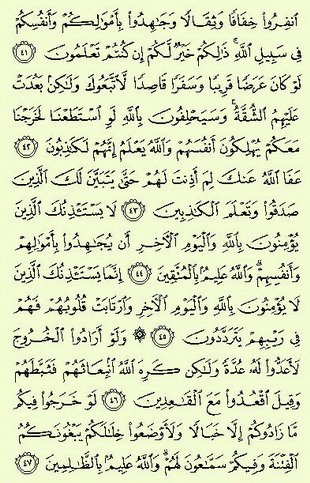 ٱنفِرُوا۟ خِفَافًا وَثِقَالًا وَجَـٰهِدُوا۟ بِأَمْوَٰلِكُمْ وَأَنفُسِكُمْ
فِى سَبِيلِ ٱللَّهِ ۚ ذَٰلِكُمْ خَيْرٌ لَّكُمْ إِن كُنتُمْ تَعْلَمُونَ ٤١
لَوْ كَانَ عَرَضًا قَرِيبًا وَسَفَرًا قَاصِدًا لَّٱتَّبَعُوكَ وَلَـٰكِنۢ بَعُدَتْ
عَلَيْهِمُ ٱلشُّقَّةُ ۚ وَسَيَحْلِفُونَ بِٱللَّهِ لَوِ ٱسْتَطَعْنَا لَخَرَجْنَا
مَعَكُمْ يُهْلِكُونَ أَنفُسَهُمْ وَٱللَّهُ يَعْلَمُ إِنَّهُمْ لَكَـٰذِبُونَ ٤٢
عَفَا ٱللَّهُ عَنكَ لِمَ أَذِنتَ لَهُمْ حَتَّىٰ يَتَبَيَّنَ لَكَ ٱلَّذِينَ
صَدَقُوا۟ وَتَعْلَمَ ٱلْكَـٰذِبِينَ ٤٣ لَا يَسْتَـْٔذِنُكَ ٱلَّذِينَ
يُؤْمِنُونَ بِٱللَّهِ وَٱلْيَوْمِ ٱلْـَٔاخِرِ أَن يُجَـٰهِدُوا۟ بِأَمْوَٰلِهِمْ
وَأَنفُسِهِمْ ۗ وَٱللَّهُ عَلِيمٌۢ بِٱلْمُتَّقِينَ ٤٤ إِنَّمَا يَسْتَـْٔذِنُكَ ٱلَّذِينَ
لَا يُؤْمِنُونَ بِٱللَّهِ وَٱلْيَوْمِ ٱلْـَٔاخِرِ وَٱرْتَابَتْ قُلُوبُهُمْ فَهُمْ
فِى رَيْبِهِمْ يَتَرَدَّدُونَ ٤٥ ۞ وَلَوْ أَرَادُوا۟ ٱلْخُرُوجَ
لَأَعَدُّوا۟ لَهُۥ عُدَّةً وَلَـٰكِن كَرِهَ ٱللَّهُ ٱنۢبِعَاثَهُمْ فَثَبَّطَهُمْ
وَقِيلَ ٱقْعُدُوا۟ مَعَ ٱلْقَـٰعِدِينَ ٤٦ لَوْ خَرَجُوا۟ فِيكُم
مَّا زَادُوكُمْ إِلَّا خَبَالًا وَلَأَوْضَعُوا۟ خِلَـٰلَكُمْ يَبْغُونَكُمُ
ٱلْفِتْنَةَ وَفِيكُمْ سَمَّـٰعُونَ لَهُمْ ۗ وَٱللَّهُ عَلِيمٌۢ بِٱلظَّـٰلِمِينَ ٤٧